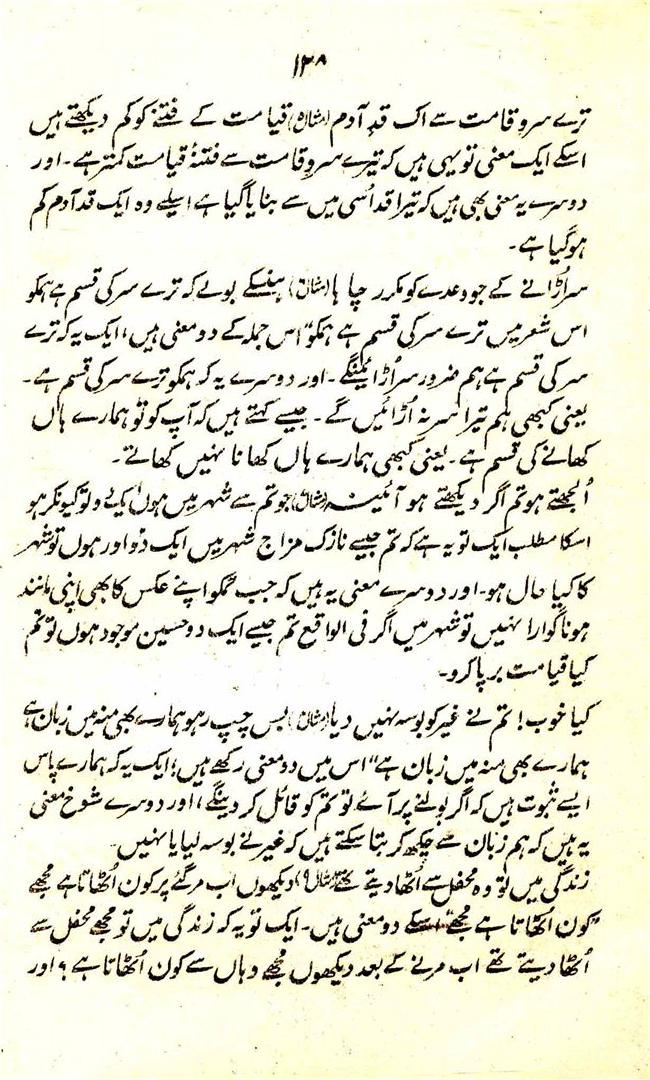 ۱۳۸
ترے سرو قامت سے اک قدِ آدم (مثال) قیامت کے فتنے کو کم دیکھتے ہیں
اسکے ایک معنی تو یہی ہیں کہ تیرے سرو قامت سے فتنۂ قیامت کمتر ہے۔ اور
دوسرے یہ معنی بھی ہیں کہ تیرا قد اُسی میں سے بنایا گیا ہے اسلیے وہ ایک قد آدم کم
ہو گیا ہے۔
سر اُڑانے کے جو وعدے کو مکرر چاہا (مثال) ہنسکے بولے کہ ترے سر کی قسم ہے ہمکو
اس شعر میں ترے سر کی قسم ہے ہمکو" اس جملہ کے دو معنی ہیں، ایک یہ کہ ترے
سر کی قسم ہے ہم ضرور سر اُڑائینگے۔ اور دوسرے یہ کہ ہمکو ترے سر کی قسم ہے۔
یعنی کبھی ہم تیرا سر نہ اُڑائیں گے۔ جیسے کہتے ہیں کہ آپ کو تو ہمارے ہاں
کھانے کی قسم ہے۔ یعنی کبھی ہمارے ہاں کھانا نہیں کھاتے۔
اُلجھتے ہو تم اگر دیکھتے ہو آئینہ (مثال) جو تم سے شہر میں ہوں ایک دو تو کیونکر ہو
اسکا مطلب ایک تو یہ ہے کہ تم جیسے نازک مزاج شہر میں ایک دو اور ہوں تو شہر
کا کیا حال ہو۔ اور دوسرے معنی یہ ہیں کہ جب تمکو اپنے عکس کا بھی اپنی مانند
ہونا گوارا نہیں تو شہر میں اگر فی الواقع تم جیسے ایک دو حسین موجود ہوں تو تم
کیا قیامت برپا کرو۔
کیا خوب! تم نے غیر کو بوسہ نہیں دیا (مثال) بس چپ رہو ہمارے بھی منہ میں زبان ہے
ہمارے بھی منہ میں زبان ہے" اس میں دو معنی رکھے ہیں؛ ایک یہ کہ ہمارے پاس
ایسے ثبوت ہیں کہ اگر بولنے پر آئے تو تم کو قائل کر دینگے، اور دوسرے شوخ معنی
یہ ہیں کہ ہم زبان سے چکھ کر بتا سکتے ہیں کہ غیر نے بوسہ لیا یا نہیں۔
زندگی میں تو وہ محفل سے اُٹھا دیتے تھے (مثال ۹) دیکھوں اب مر گئے پر کون اُٹھاتا ہے مجھے
"کون اٹھاتا ہے مجھے" اسکے دو معنی ہیں۔ ایک تو یہ کہ زندگی میں تو مجھے محفل سے
اُٹھا دیتے تھے اب مرنے کے بعد دیکھوں مجھے وہاں سے کون اُٹھاتا ہے؟ اور